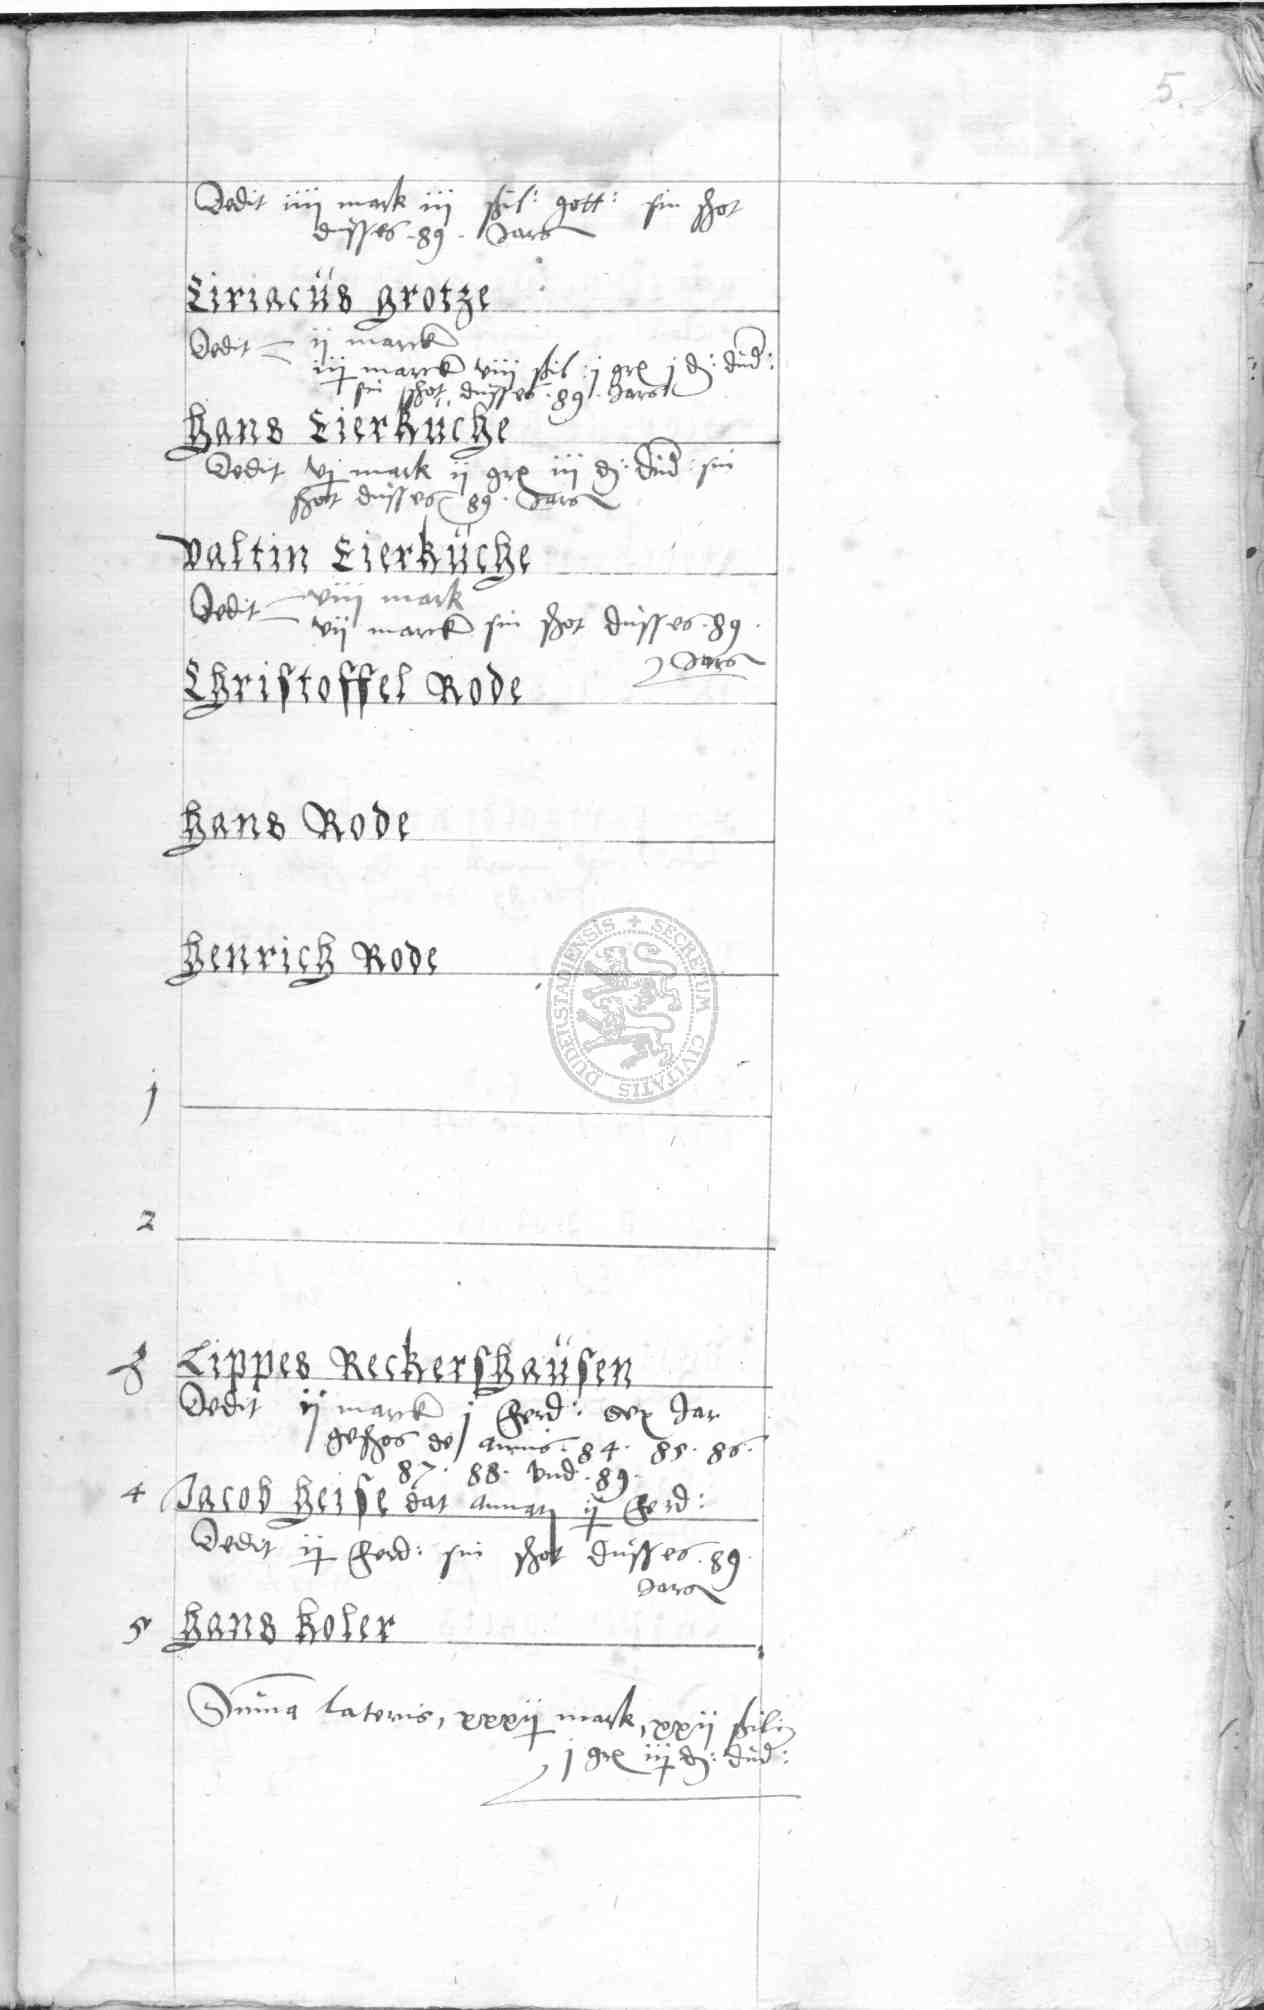 5.
Dedit iiij mark iij ſzil: gott: sin schot
düsses .89. Jars
Ciriacüs Grotze
Dedit ij marck
iij marck viij ſzil: j gr j d: düd:
sin schot düsses .89. Jars
Hans Eierküche
Dedit vj mark ij gr iij d: düd: sin
schot düsses 89. Jars
Valtin Eierküche
Dedit viij mark
vij marck sin schot düsses .89.
Jars
Christoffel Rode
Hans Rode
Henrich Rode
SECRETUM CIVITATIS DUDERSTADIENSIS
1
2
3 Lippes Reckershaüsen
Dedit ij marck j ferd: sex Jar
geschos de annis .84. 85. 86.
87. 88. vnd .89.
4 Jacob Heise dat ij ferd:
Dedit ij ferd: sin schot düsses .89.
Jars
5 Hans Koler
Suma lateris, xxxij mark, xxij ſzil:
j gr iij d: düd: